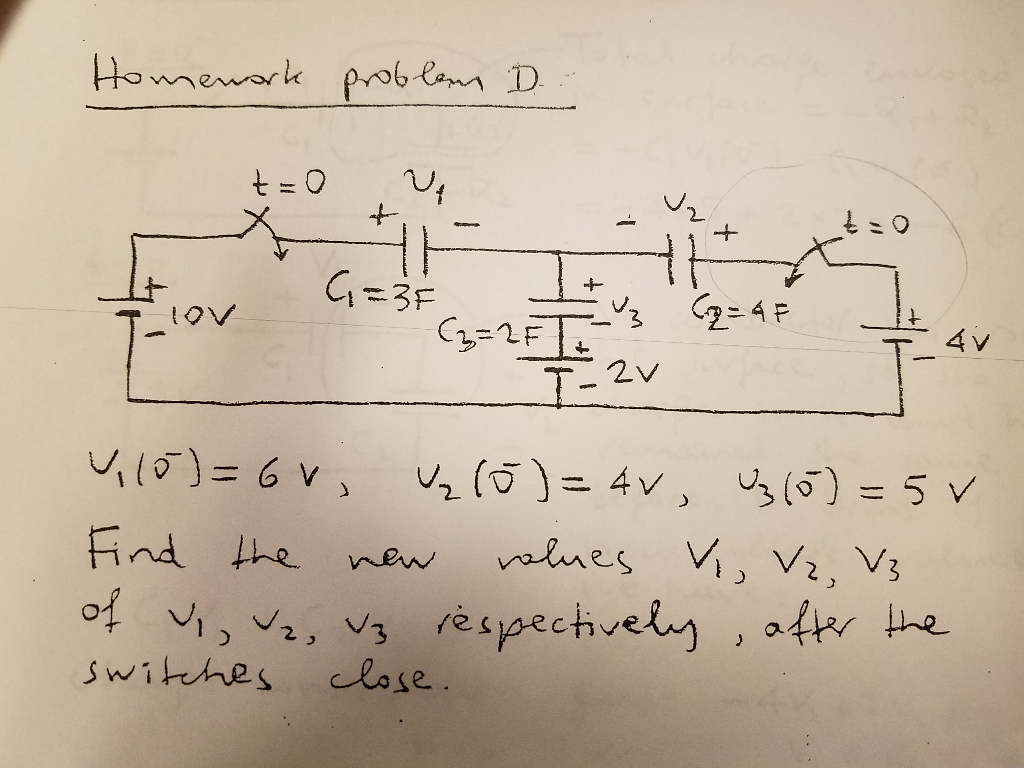 Homework problem D.
t = 0
V1
t = 0
V2
+ -
- +
C1 = 3F
C2 = 4F
+
- 10V
C3 = 2F
+
- V3
+
- 2V
+
- 4V
V1(0-) = 6 V, V2(0-) = 4V, V3(0-) = 5 V
Find the new values V1, V2, V3
of V1, V2, V3 respectively, after the
switches close.